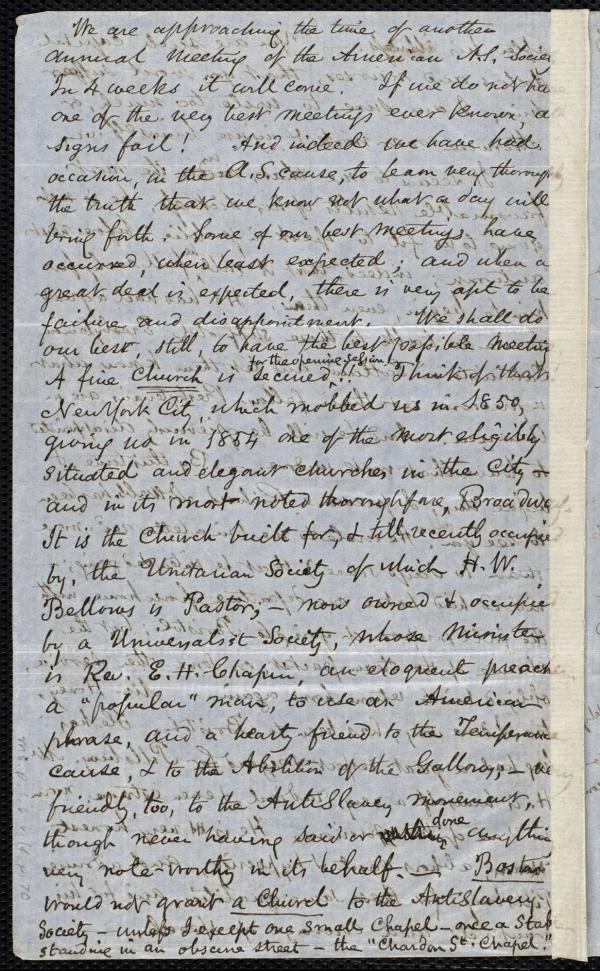 We are approaching the time of another
annual meeting of the American A.S. Socie
In 4 weeks it will come. If we do not ha
one of the very best meetings ever known, a
signs fail! And indeed we have had
occasion, in the A.S. cause, to learn very thorough
the truth that we know not what a day will
bring forth. Some of our best meetings have
occurred, when least expected; and when a
great deal is expected, there is very apt to be
failure and disappointment. We shall do
our best, still, to have the best possible meeting
for the opening session
A fine Church is secured, Think of that!
New York City, which mobbed us in 1850,
giving us in 1854 one of the most eligibly
situated and elegant churches in the City &
and in its most noted thoroughfare, Broadwa
It is the Church built for, & till recently occupie
by, the Unitarian Society of which H. W.
Bellows is Pastor; – now owned & occupie
by a Universalist Society, whose Minister
is Rev. E. H. Chapin, an eloquent preach
a "popular" man, to use an American
phrase, and a hearty friend to the Temperance
cause, & to the Abolition of the Gallows; – ve
friendly, too, to the AntiSlavery movement,
done
though never having said or anythin
very note-worthy in its behalf. – Boston
would not grant a Church to the AntiSlavery
Society – unless I except one small Chapel – once a Stab
standing in an obscure street – the "Chardon St. Chapel."